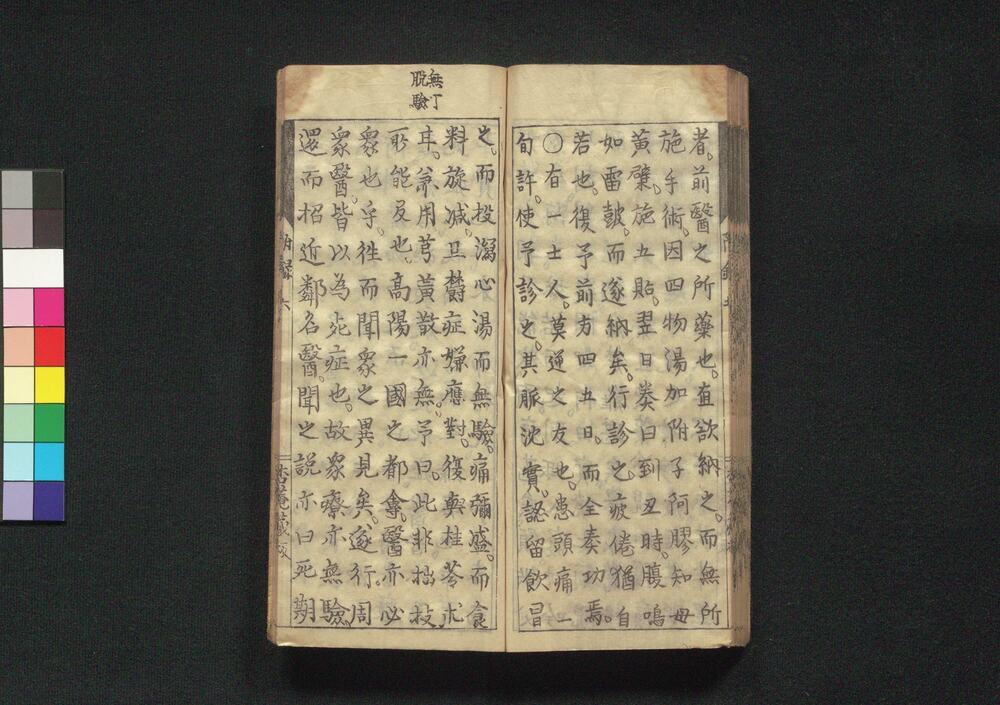 者。前醫之所藥也。直欲納之。而無所
施手術。因四物湯加附子阿膠知母
黃蘗。施五貼。翌日奏曰。到丑時。腹鳴
如雷皷。而遂納矣。行診之。疲倦猶自
若也。復予前方四五日。而全奏功焉。
○有一士人。莫逆之友也。患頭痛二
旬許。使予診之。其脈沈實。認留飲冒
之。而投瀉心湯而無驗。痛彌盛。而食
料旋减。且欝症嫌應對。復與桂苓朮
耳。兼用芎黃散亦無。予曰。此非拙技
所能及也。高陽一國之都會。醫亦必
衆也乎。徃而聞衆之異見矣。遂行。周
衆醫。皆以為死症也。故衆療亦無驗。
還而招近鄰名醫。聞之説亦曰死期
無丁
脫驗
附錄 六